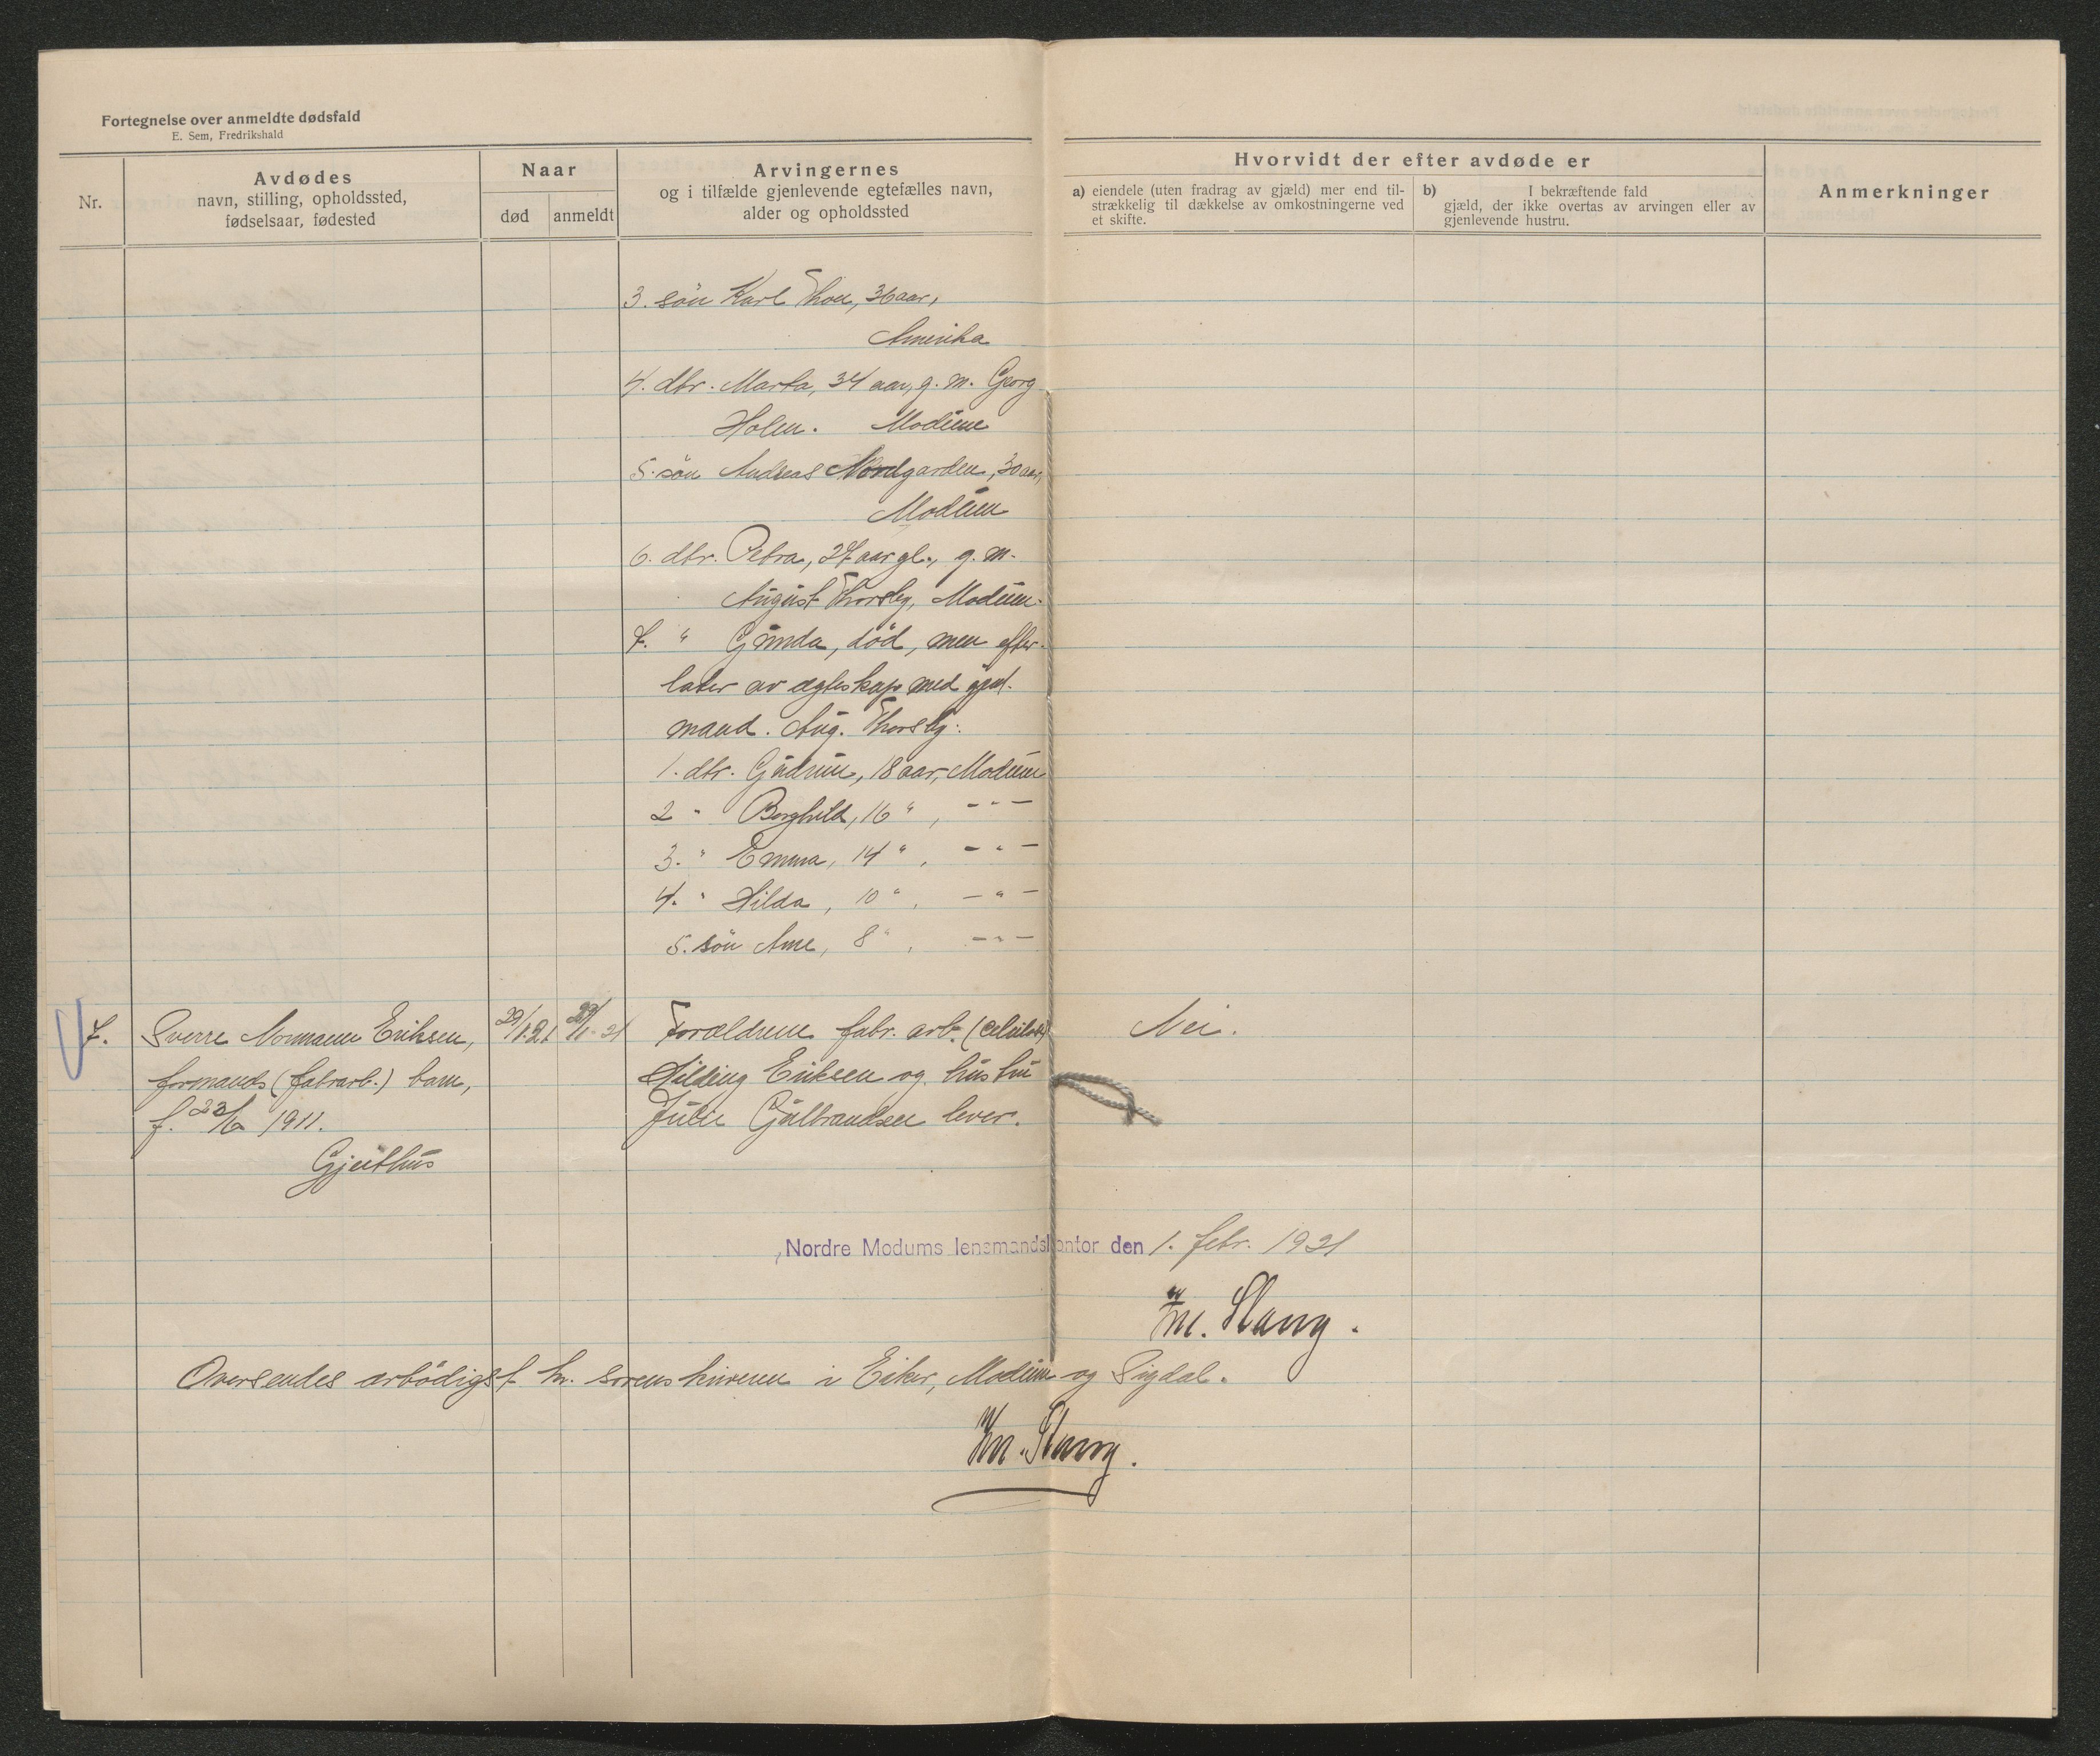 Fortegnelse over anmeldte dødsfald
E. Sem, Fredrikshald
Nr.
Avdødes
navn, stilling, opholdssted,
fødselsaar, fødested
Naar
død
anmeldt
Arvingernes
og i tilfælde gjenlevende egtefælles navn,
alder og opholdssted
Hvorvidt der efter avdøde er
a) eiendele (uten fradrag av gjæld) mer end til-
strækkelig til dækkelse av omkostningerne ved
et skifte.
b) I bekræftende fald
gjæld, der ikke overtas av arvingen eller av
gjenlevende hustru.
Anmerkninger
3. sön Karl Thon, 36 aar,
Amerika
4. dtr. Marta, 34 aar, g. m. Georg
Holen. Modum
5. sön Andreas Nordgarden, 30 aar,
Modum
6. dtr. Petra, 27 aar gl., g. m.
August Thorsby, Modum.
7. " Gunda, död, men efter-
later av ægteskap med gjenl.
mand. Aug. Thorsby:
1. dtr. Gudrun, 18 aar, Modum
2 " Borghild, 16 ", - " -
3. " Emma, 14 ", - " -
4. " Hilda, 10 ", - " -
5. sön Arne, 8 ", - " -
7. Sverre Normann Eriksen, 29/1-21 29/1-21 Forældrene fabr. arb. (celulose) Nei.
formands (fabrarb.) barn, Hilding Eriksen og hustru
f. 23/6 1911. Julie Gulbrandsen lever.
Gjeithus
Nordre Modums lensmandskontor den 1. febr. 1921
M. Slang.
Oversendes ærbödigst hr. sorenskriveren i Eiker, Modum og Sigdal.
M. Slang.